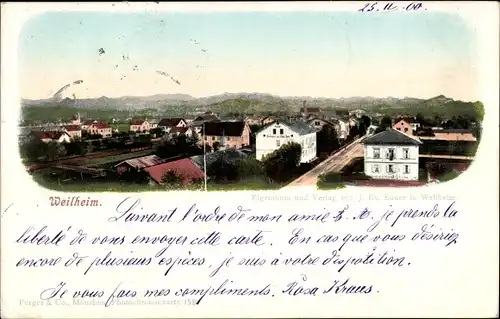 25. 11. 00.
Weilheim.
Eigenthum und Verlag von J. Bauer in Weilheim
Suivant l'ordre de mon amie E. M. je prends la
liberté de vous envoyer cette carte. En cas que vous désiriez
encore de plusieurs espices, je suis à votre disposition.
Je vous fais mes compliments. Rosa Kraus.
Purger & Co., München, Photochromiekarte